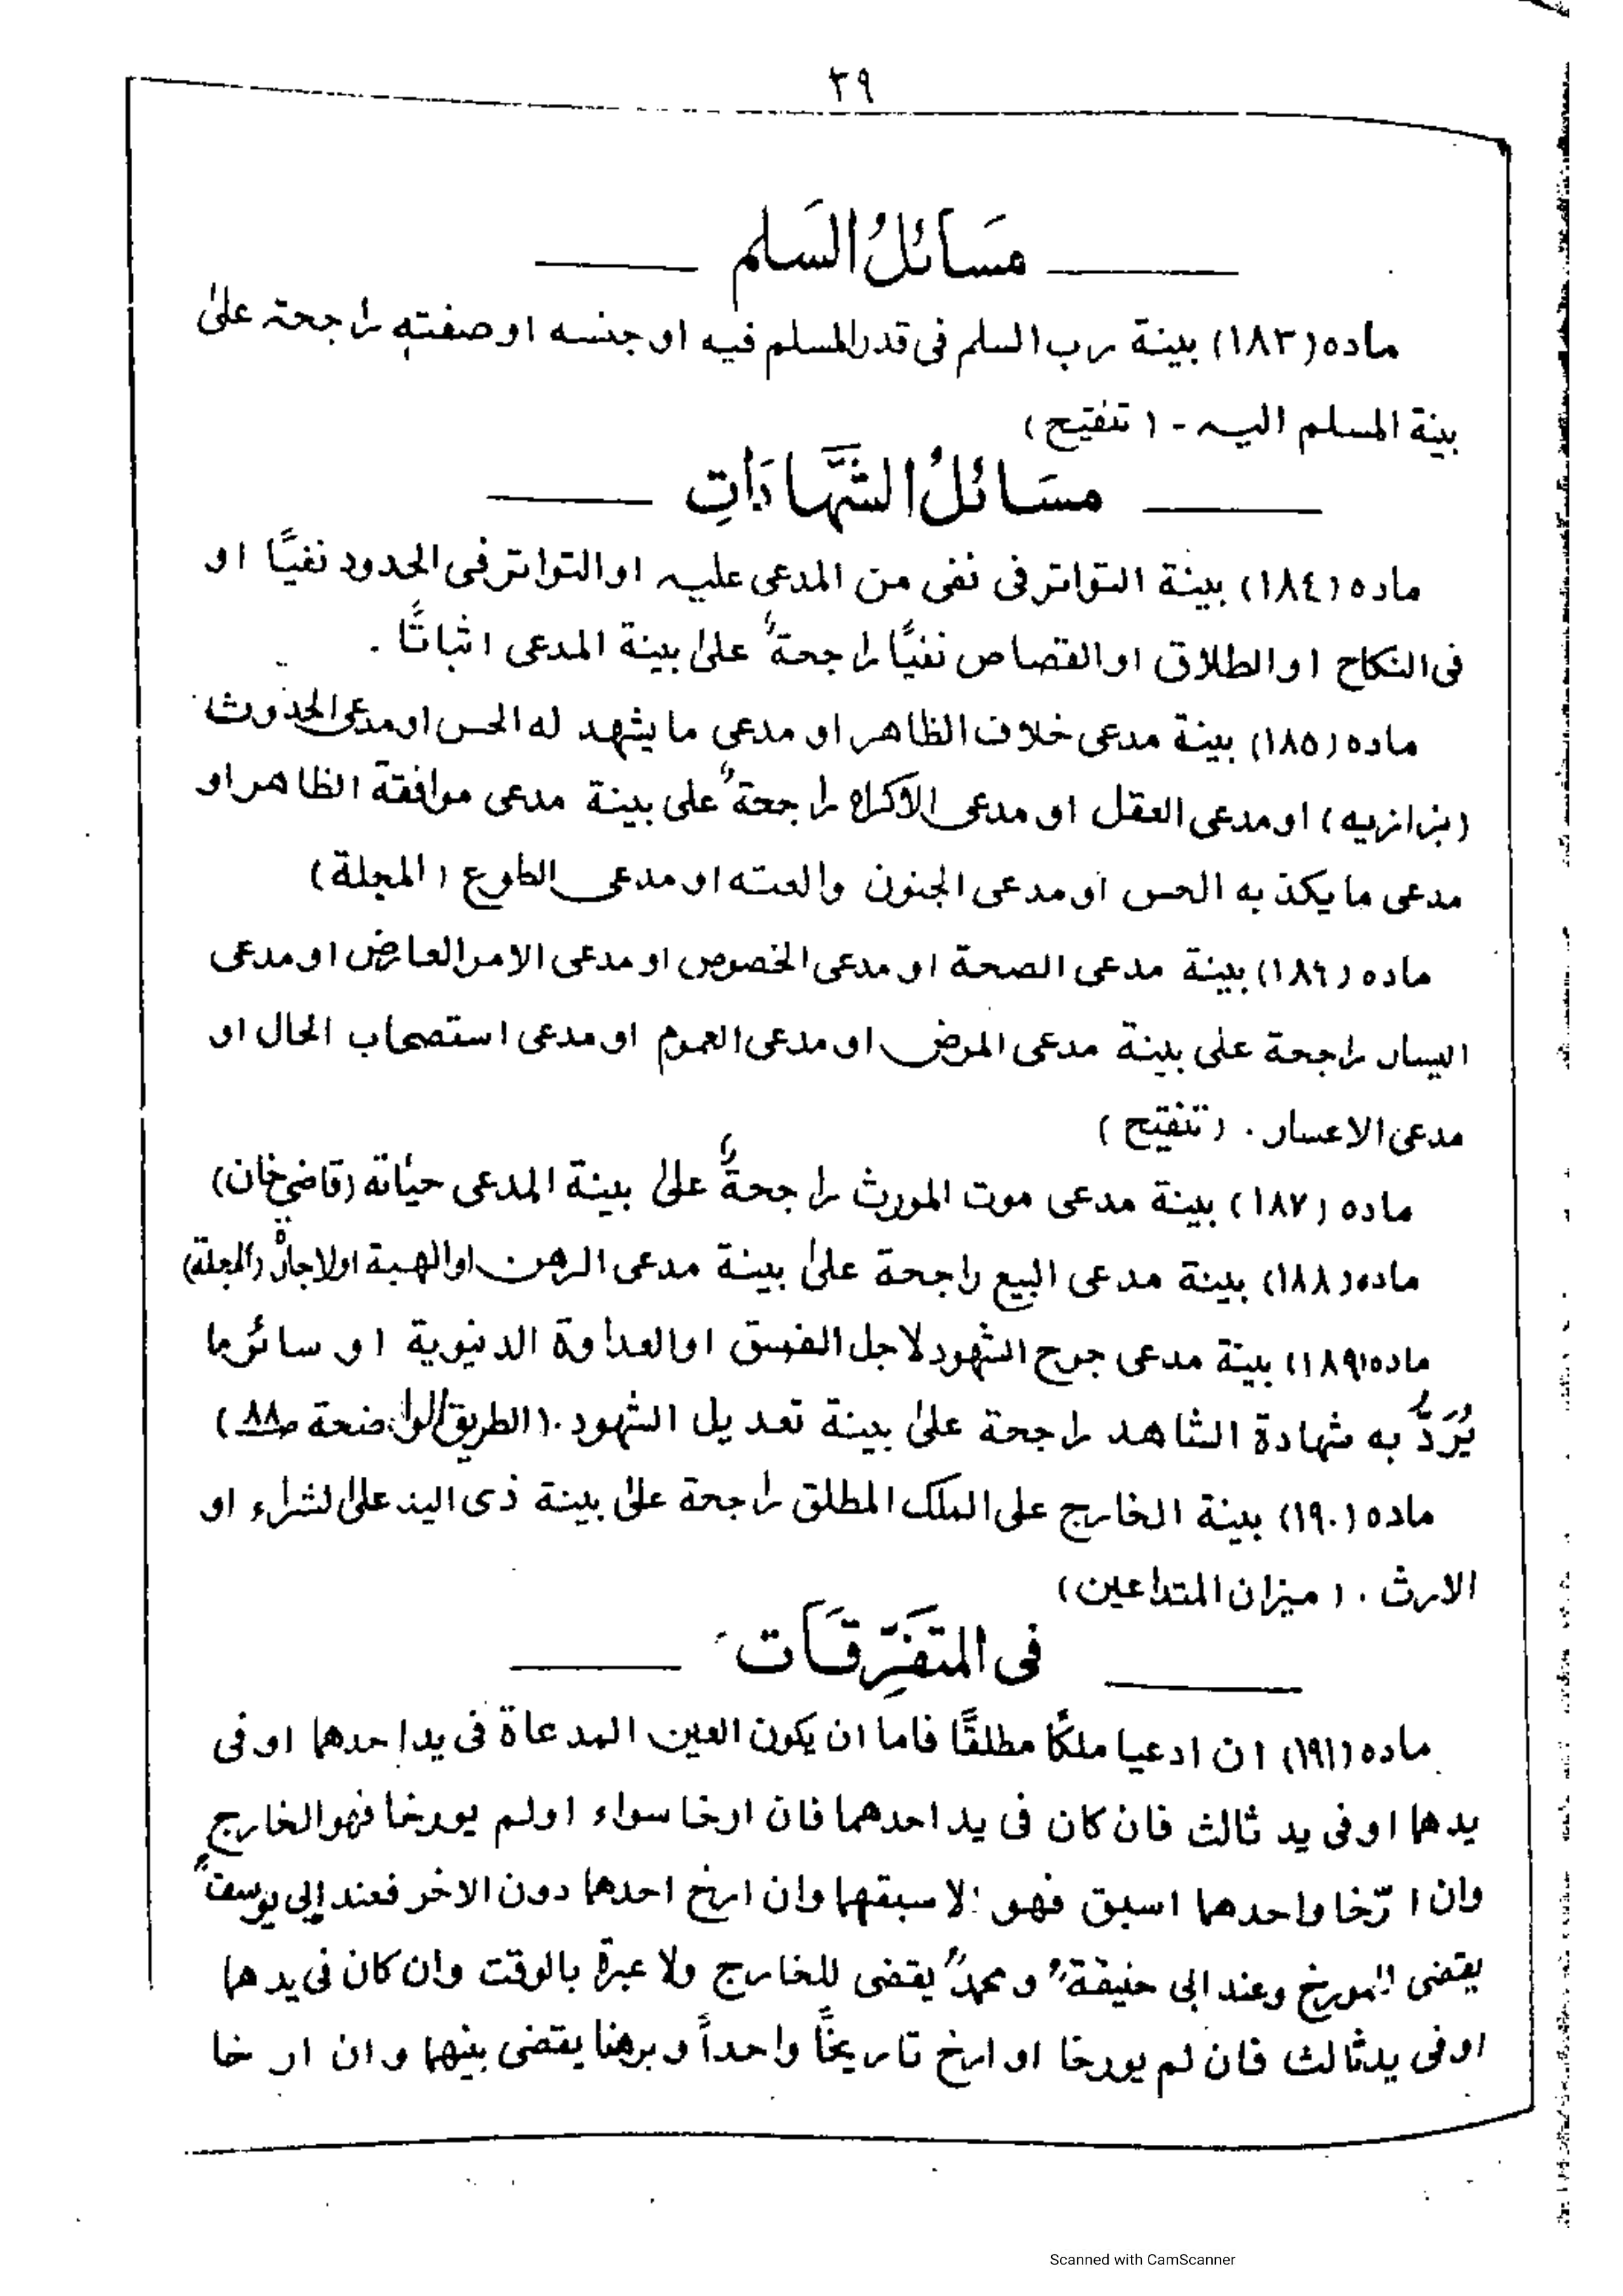 ٣٩
مَسَائلُ السَلم
ماده (١٨٣) بينة رب السلم فى قدر المسلم فيه او جنسه او صفته راجحة على
بينة المسلم اليه - (تنقيح)
مسَائلُ الشَّهادَاتِ
ماده (١٨٤) بينة التواتر فى نفى من المدعى عليه او التواتر فى الحدود نفيًا او
فى النكاح او الطلاق او القصاص نفيًا راجحة على بينة المدعى اثباتًا .
ماده (١٨٥) بينة مدعى خلاف الظاهر او مدعى ما يشهد له الحس او مدعى الحدوث
(بزازيه) او مدعى العقل او مدعى الاكراه راجحة على بينة مدعى موافقة الظاهر او
مدعى ما يكذبه الحس او مدعى الجنون والعته او مدعى الطوع (المجلة)
ماده (١٨٦) بينة مدعى الصحة او مدعى الخصوص او مدعى الامر العارض او مدعى
اليسار راجحة على بينة مدعى المرض او مدعى العموم او مدعى استصحاب الحال او
مدعى الاعسار . (تنقيح)
ماده (١٨٧) بينة مدعى موت المورث راجحةٌ على بينة المدعى حياته (قاضى خان)
ماده (١٨٨) بينة مدعى البيع راجحة على بينة مدعى الرهن او الهبة او الاجارة (المجلة)
ماده (١٨٩) بينة مدعى جرح الشهود لاجل الفسق او العداوة الدنيوية او سائر ما
يُرَدُّ به شهادة الشاهد راجحة على بينة تعديل الشهود . (الطريق الواضحة ص ٨٨)
ماده (١٩٠) بينة الخارج على الملك المطلق راجحة على بينة ذى اليد على الشراء او
الارث . (ميزان المتداعين)
فى المتفَرِّقَات
ماده (١٩١) ان ادعيا ملكًا مطلقًا فاما ان يكون العين المدعاة فى يد احدهما او فى
يدهما او فى يد ثالث فان كان فى يد احدهما فان ارخا سواء او لم يورخا فهو الخارج
وان ارّخا واحدهما اسبق فهو لاسبقهما وان ارخ احدهما دون الاخر فعند ابى يوسف
يقضى للمورخ وعند ابى حنيفة و محمد يقضى للخارج ولا عبرة بالوقت وان كان فى يدهما
او فى يد ثالث فان لم يورخا او ارخ تاريخًا واحداً و برهنا يقضى بينهما و ان ارخا
Scanned with CamScanner